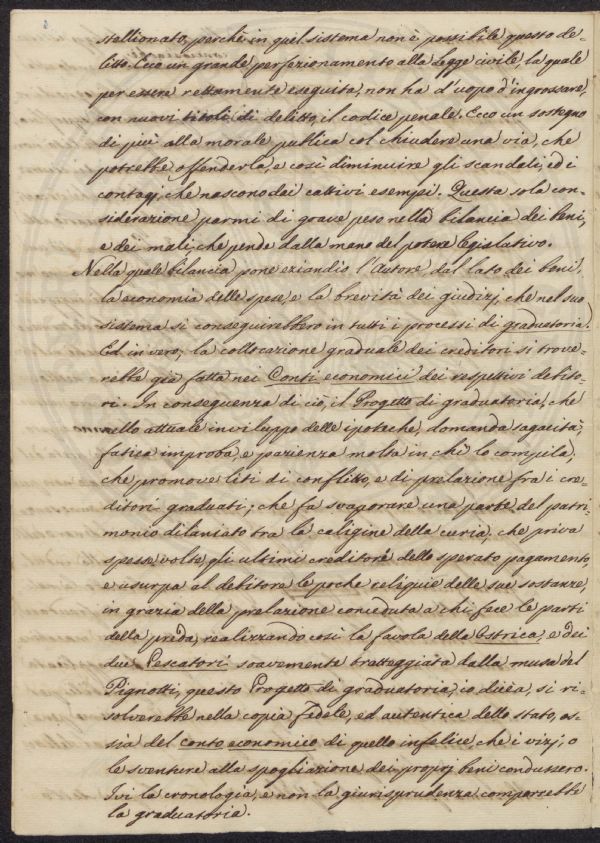 stellionato, perchè in quel sistema non è possibile questo de-
litto. Ecco un grande perfezionamento alla legge civile, la quale
per essere rettamente eseguita, non ha d'uopo d'ingrossare
con nuovi titoli di delitto, il codice penale. Ecco un sostegno
di più alla morale publica col chiudere una via, che
potrebbe offenderla, e così diminuire gli scandali, ed i
contagj, che nascono dai cattivi esempi. Questa sola con-
siderazione parmi di grave peso nella bilancia dei beni,
e dei mali, che pende dalla mano del potere legislativo.
Nella quale bilancia pone eziandio l'Autore dal lato dei beni,
la economia delle spese, e la brevità dei giudizj, che nel suo
sistema si conseguirebbero in tutti i processi di graduatoria.
Ed in vero, la collocazione graduale dei creditori si trove-
rebbe già fatta nei Conti economici dei respettivi debito-
ri. In conseguenza di ciò, il Progetto di graduatoria, che
nello attuale inviluppo delle ipoteche, domanda sagacità,
fatica improba, e pazienza molta in chi lo compila,
che promove liti di conflitto, e di prelazione fra i cre-
ditori graduati; che fa svaporare una parte del patri-
monio dilaniato tra la caligine della curia, che priva
spesse volte gli ultimi creditori dello sperato pagamento,
e usurpa al debitore le poche reliquie delle sue sostanze,
in grazia della prelazione conceduta a chi fece le parti
della preda, realizzando così la favola della Ostrica, e dei
due Pescatori soavemente tratteggiata dalla musa del
Pignotti, questo Progetto di graduatoria, io dicea, si ri-
solverebbe nella copia fedele, ed autentica dello stato, os-
sia del conto economico di quello infelice, che i vizj, o
le sventure alla spogliazione dei proprj beni condussero.
Ivi la cronologia, e non la giurisprudenza comporrebbe
la graduatoria.